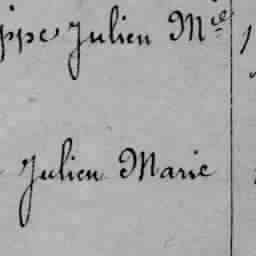 ippe Julien M^ie
Julien Marie